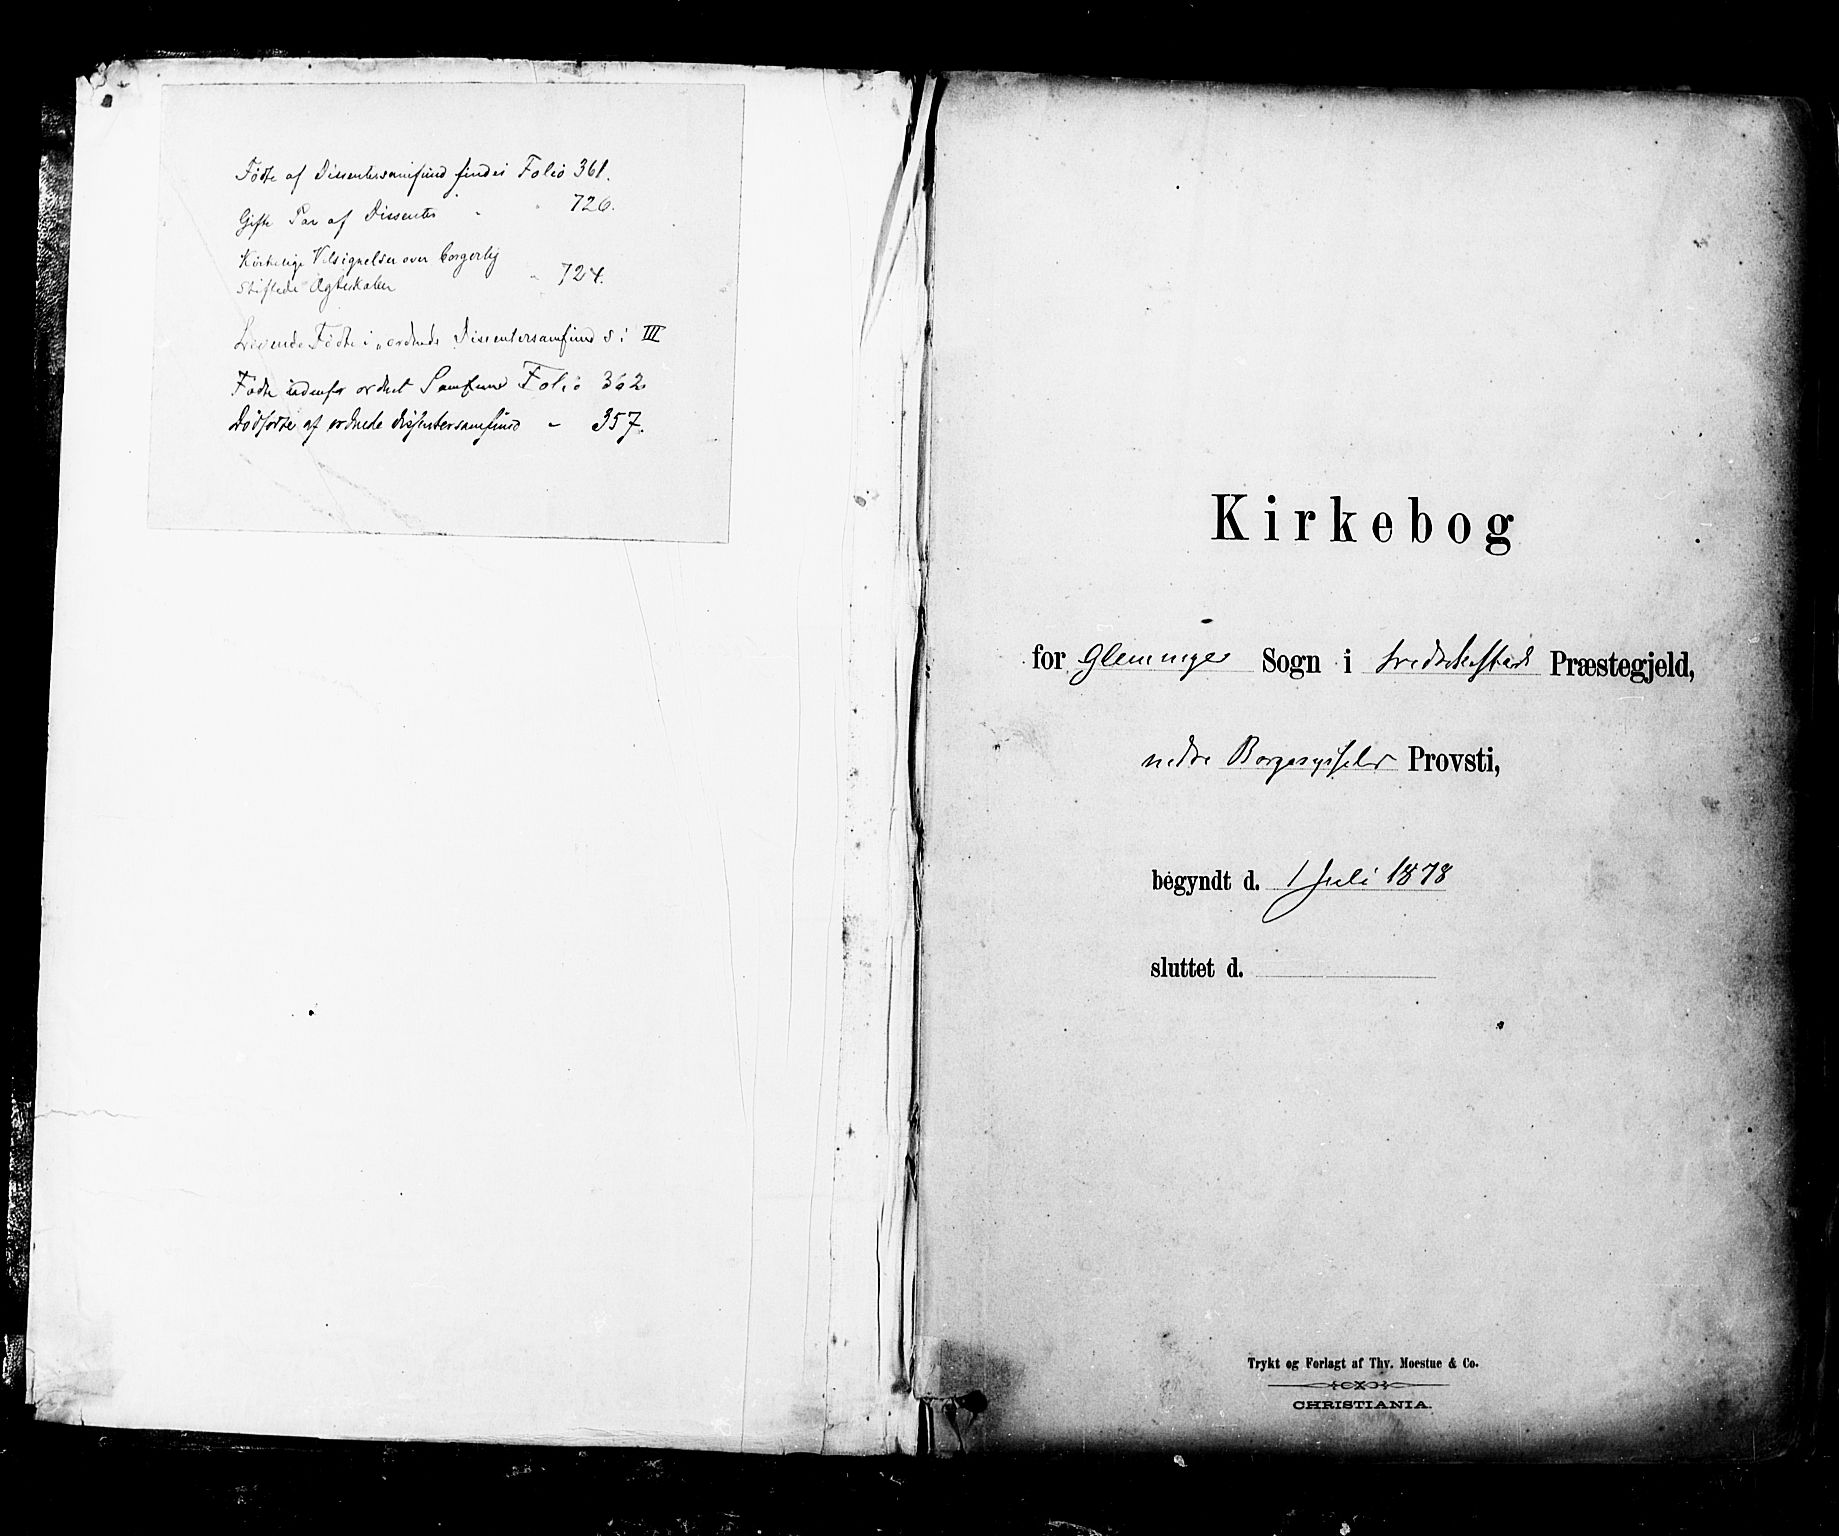 Fødte af Dissentersamfund findes Folio 361.
Gifte Par af Dissenter " " 726.
Kirkelige Velsignelser over borgerlig
stiftede Ægteskaber " 724.
Levende Fødte i "ordnede Dissentersamfund s: III
Fødte udenfor ordnet Samfund Folio 362
Dødfødte af ordnede dissentersamfund " 357.
Kirkebog
for Glemminge Sogn i Fredrikstad Præstegjeld,
nedre Borgesyssels Provsti,
begyndt d. 1 Juli 1878
sluttet d.
Trykt og Forlagt af Thv. Moestue & Co.
CHRISTIANIA.